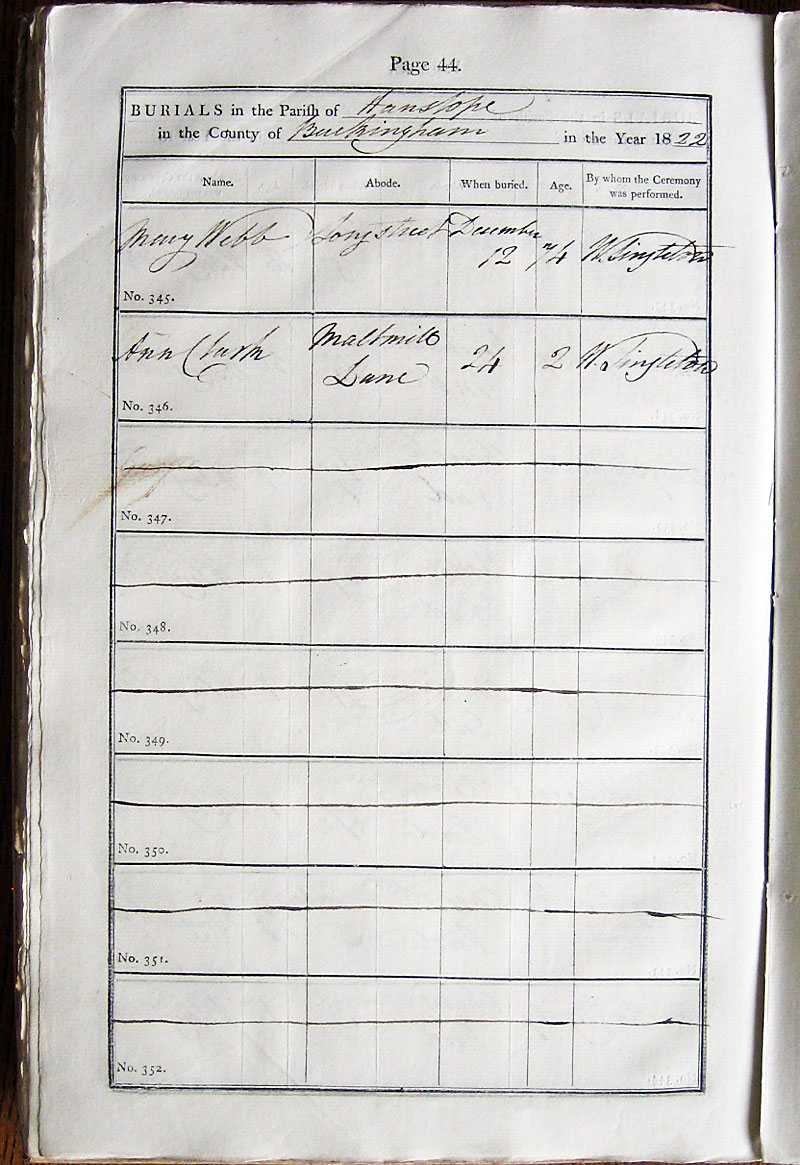 Page 44.
BURIALS in the Parish of Hanslope
in the County of Buckingham in the Year 1822
Name. Abode. When buried. Age. By whom the Ceremony was performed.
Mary Webb Longstreet December 12 74 W. Singleton
No. 345.
Ann Clark Maltmill Lane 24 2 W. Singleton
No. 346.
No. 347.
No. 348.
No. 349.
No. 350.
No. 351.
No. 352.